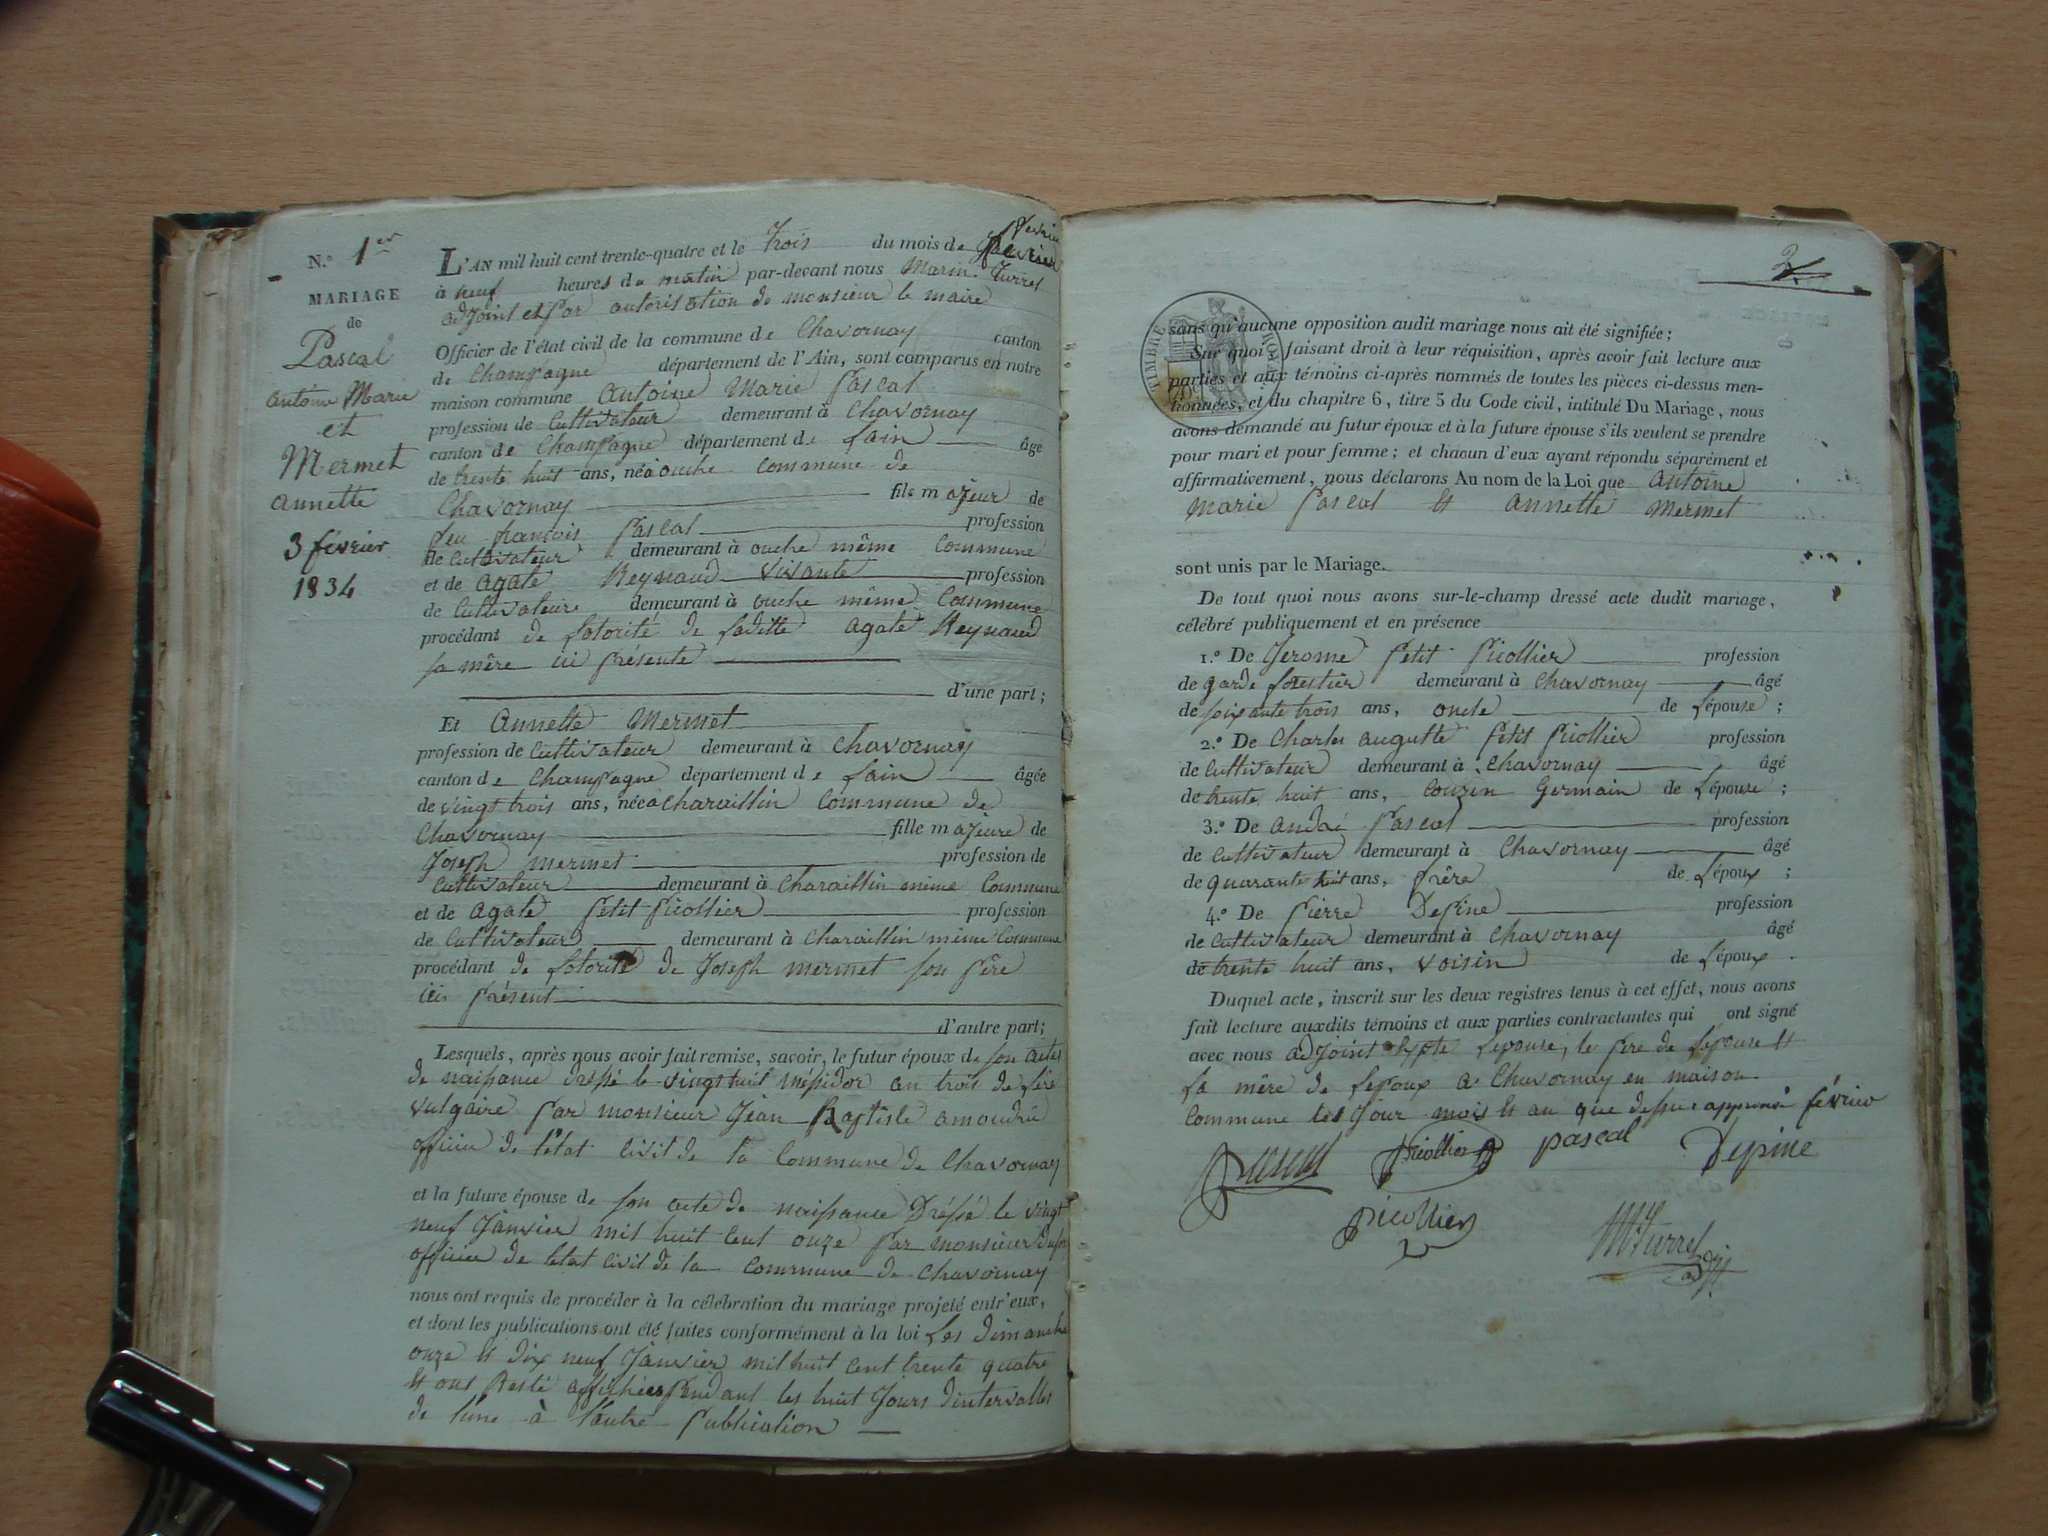 N.° 1er
MARIAGE
de
Pascal
Antoine Marie
et
Mermet
annette
3 février
1834
L'AN mil huit cent trente-quatre et le Trois du mois de février
à neuf heures du matin par-devant nous Marin Turrel
adjoint et par autorisation de monsieur le maire
Officier de l'état civil de la commune de Chavornay canton
de Champagne département de l'Ain, sont comparus en notre
maison commune Antoine Marie Pascal
profession de Cultivateur demeurant à Chavornay
canton de Champagne département de lain âgé
de trente huit ans, né à ouche commune de
Chavornay fils majeur de
feu françois Pascal profession
de Cultivateur demeurant à ouche même Commune
et de agate Reynaud vivante profession
de Cultivateur demeurant à ouche même Commune
procédant de lotorité de laditte agate Reynaud
sa mère ici présente
d'une part;
Et Annette Mermet
profession de Cultivateur demeurant à Chavornay
canton de Champagne département de lain âgée
de vingt trois ans, née à Charaillin Commune de
Chavornay fille majeure de
Joseph mermet profession de
Cultivateur demeurant à Charaillin même Commune
et de agate petit Picollier profession
de Cultivateur demeurant à Charaillin même Commune
procédant de lotorité de Joseph mermet son père
ici présent
d'autre part;
Lesquels, après nous avoir fait remise, savoir, le futur époux de son acte
de naissance dressé le vingt huit messidor an trois de lère
vulgaire par monsieur Jean Baptiste amoudru
officier de l'état civil de la Commune de Chavornay
et la future épouse de son acte de naissance Dréssé le vingt
neuf Janvier mil huit cent onze par monsieur
officier de létat civil de la commune de Chavornay
nous ont requis de procéder à la célébration du mariage projeté entr'eux,
et dont les publications ont été faites conformément à la loi Les dimanche
onze et dix neuf Janvier mil huit cent trente quatre
et ont Resté affichées pendant les huit Jours dintervalles
de lune à lautre publication
2
TIMBRE ROYAL
sans qu'aucune opposition audit mariage nous ait été signifiée;
Sur quoi faisant droit à leur réquisition, après avoir fait lecture aux
parties et aux témoins ci-après nommés de toutes les pièces ci-dessus men-
tionnées, et du chapitre 6, titre 5 du Code civil, intitulé Du Mariage, nous
avons demandé au futur époux et à la future épouse s'ils veulent se prendre
pour mari et pour femme; et chacun d'eux ayant répondu séparément et
affirmativement, nous déclarons Au nom de la Loi que Antoine
Marie Pascal et annette mermet
sont unis par le Mariage.
De tout quoi nous avons sur-le-champ dressé acte dudit mariage,
célébré publiquement et en présence
1.° De Jerome petit Picollier profession
de garde forestier demeurant à Chavornay âgé
de soixante trois ans, oncle de Lépouse;
2.° De Charles auguste petit Picollier profession
de Cultivateur demeurant à Chavornay âgé
de trente huit ans, Couzin Germain de Lépouse;
3.° De andré Pascal profession
de Cultivateur demeurant à Chavornay âgé
de quarante huit ans, frère de Lépoux;
4.° De pierre Depine profession
de Cultivateur demeurant à Chavornay âgé
de trente huit ans, voisin de lépoux.
Duquel acte, inscrit sur les deux registres tenus à cet effet, nous avons
fait lecture auxdits témoins et aux parties contractantes qui ont signé
avec nous adjoint Lepouse, le père de lépouse et
la mère de lépoux a Chavornay en maison
Commune les Jour mois et an que dessus approuvé février
Pascal Picollier pascal Depine
picollier
M Turrel
adjt